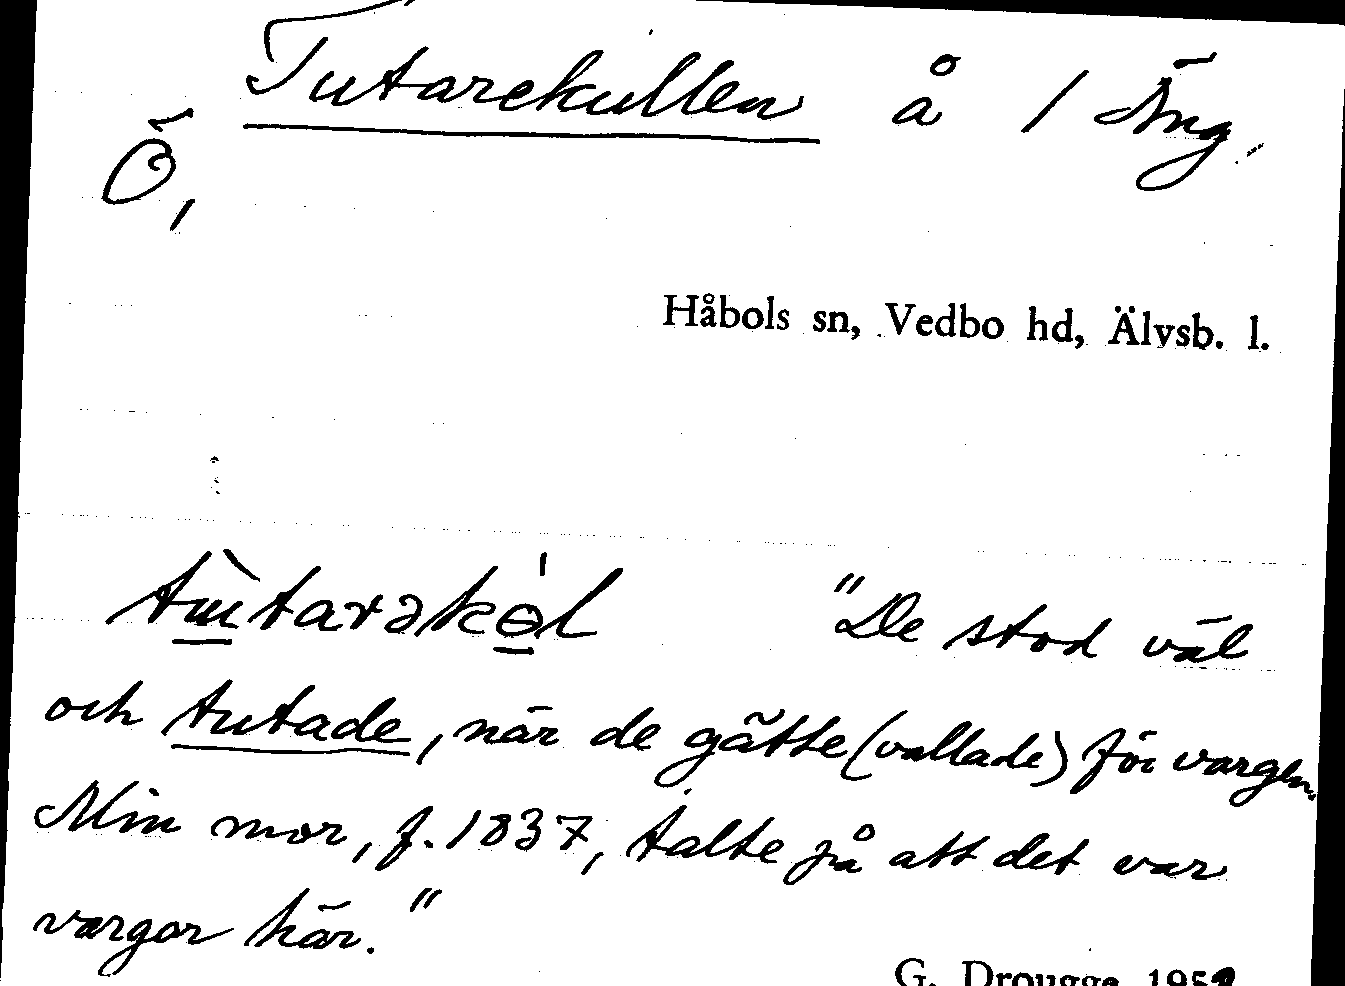 Tutarekullen å 1 Äng,
Ö,
Håbols sn, Vedbo hd, Älvsb. l.
"De stod väl
och tutade, när de gätte (vallade) för vargen.
Min mor, f. 1837, talte på att det var
vargar här."
G. Drougge 195